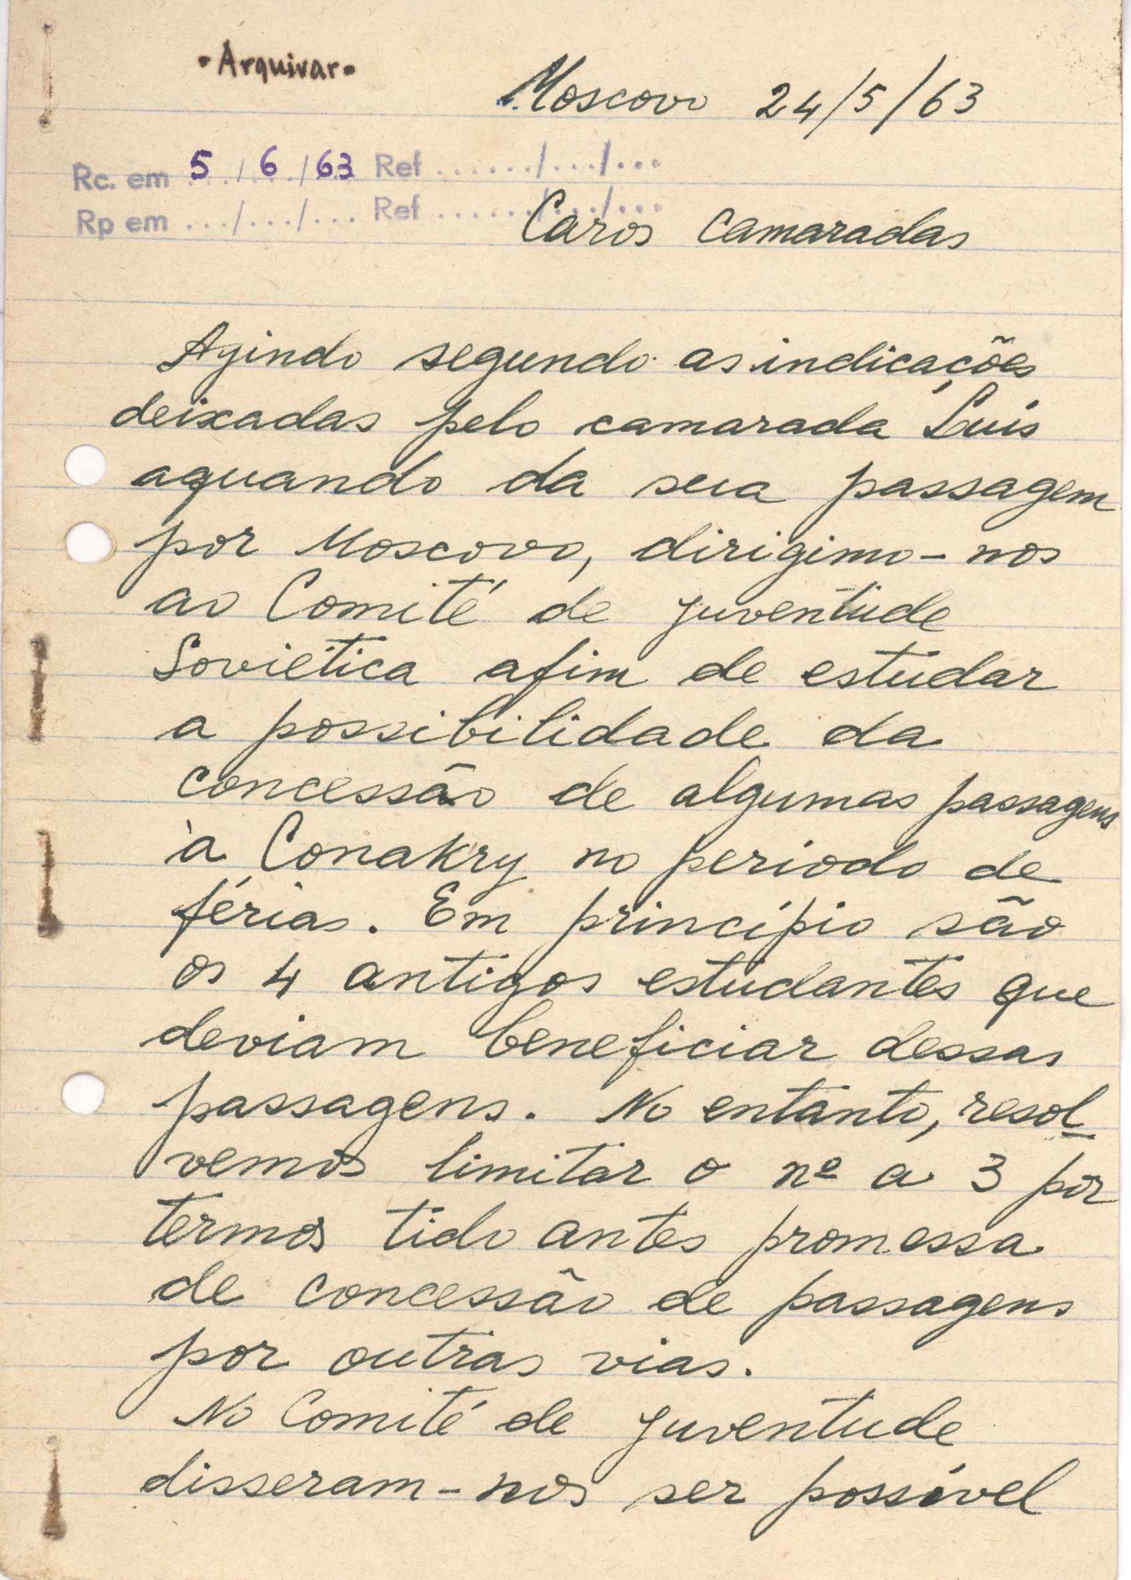 • Arquivar •
Moscovo 24/5/63
Rc. em 5/6/63 Ref ......./.../...
Rp em .../.../... Ref ......./.../...
Caros Camaradas
Agindo segundo as indicações
deixadas pelo camarada Luís
aquando da sua passagem
por Moscovo, dirigimo-nos
ao Comité de juventude
Soviética afim de estudar
a possibilidade da
concessão de algumas passagens
à Conakry no periodo de
férias. Em princípio são
os 4 antigos estudantes que
deviam beneficiar dessas
passagens. No entanto, resol-
vemos limitar o nº a 3 por
termos tido antes promessa
de concessão de passagens
por outras vias.
No Comité de juventude
disseram-nos ser possível